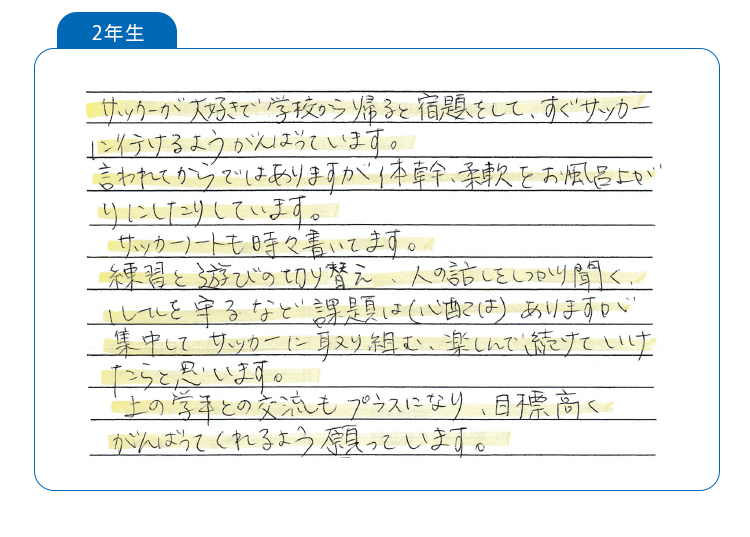 2年生
サッカーが大好きで学校から帰ると宿題をして、すぐサッカー
に行けるようがんばっています。
言われてからではありますが体幹、柔軟をお風呂上が
りにしたりしています。
サッカーノートも時々書いてます。
練習と遊びの切り替え、人の話しをしっかり聞く、
ルールを守るなど課題は(心配では)ありますが
集中してサッカーに取り組む、楽しんで続けていけ
たらと思います。
上の学年との交流もプラスになり、目標高く
がんばってくれるよう願っています。